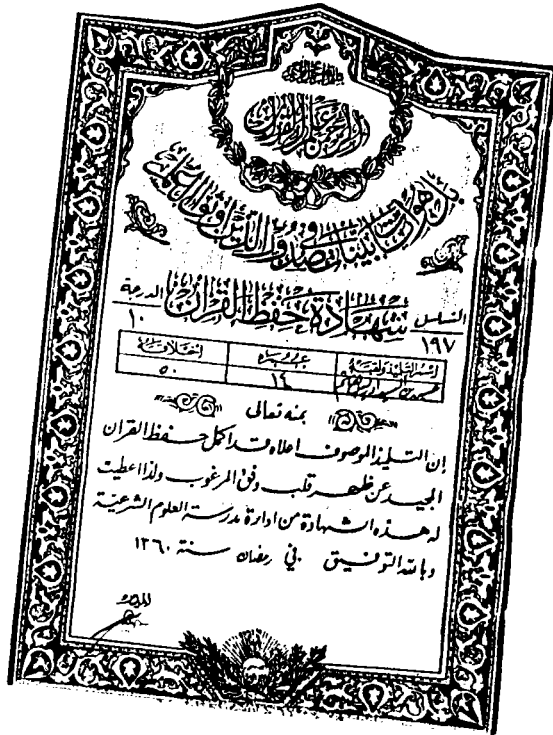 بل هو آيات بينات في صدور الذين أوتوا العلم
التسلسل شهادة حفظ القرآن الدرجة
١٩٧ ١٠
اسم التلميذ ولقبه عمره اخلاقه
١٤ ٥٠
بمنه تعالى
إن التلميذ الموصوف اعلاه قد اكمل حفظ القرآن
المجيد عن ظهر قلب وفق المرغوب ولذا اعطيت
له هذه الشهادة من ادارة مدرسة العلوم الشرعية
وبالله التوفيق في رمضان سنة ١٣٦٠
المدير